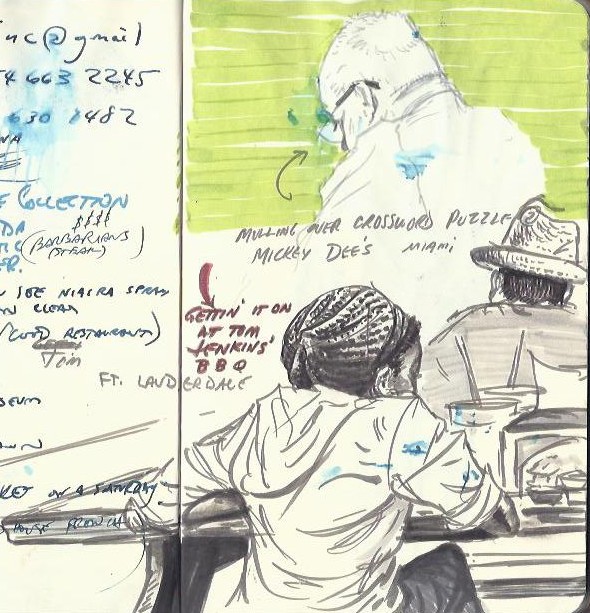 nc@gmail
4 663 2245
630 1482
NA
E COLLECTION
DA $$$$
(BARBARIANS STEAK)
ER.
N JOE NIAGRA SPRAY
N CLEAN
GOOD RESTAURANT)
TOM
SEUM
OWN
KET ON A SATURDAY
HOUSE FRENCH
MULLING OVER CROSSWORD PUZZLE
MICKEY DEE'S MIAMI
GETTIN' IT ON
AT TOM
JENKINS'
BBQ
FT. LAUDERDALE